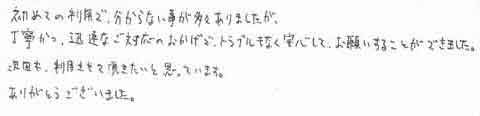 初めての利用で、分からない事が多々ありましたが、
丁寧かつ、迅速なご対応のおかげで、トラブルもなく安心して、お願いすることができました。
次回も、利用させて頂きたいと思っています。
ありがとうございました。